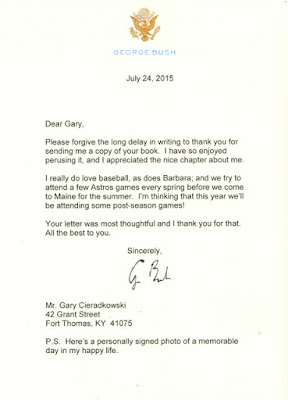 GEORGE BUSH
July 24, 2015
Dear Gary,
Please forgive the long delay in writing to thank you for
sending me a copy of your book. I have so enjoyed
perusing it, and I appreciated the nice chapter about me.
I really do love baseball, as does Barbara; and we try to
attend a few Astros games every spring before we come
to Maine for the summer. I'm thinking that this year we'll
be attending some post-season games!
Your letter was most thoughtful and I thank you for that.
All the best to you.
Sincerely,
G Bush
Mr. Gary Cieradkowski
42 Grant Street
Fort Thomas, KY 41075
P.S. Here's a personally signed photo of a memorable
day in my happy life.